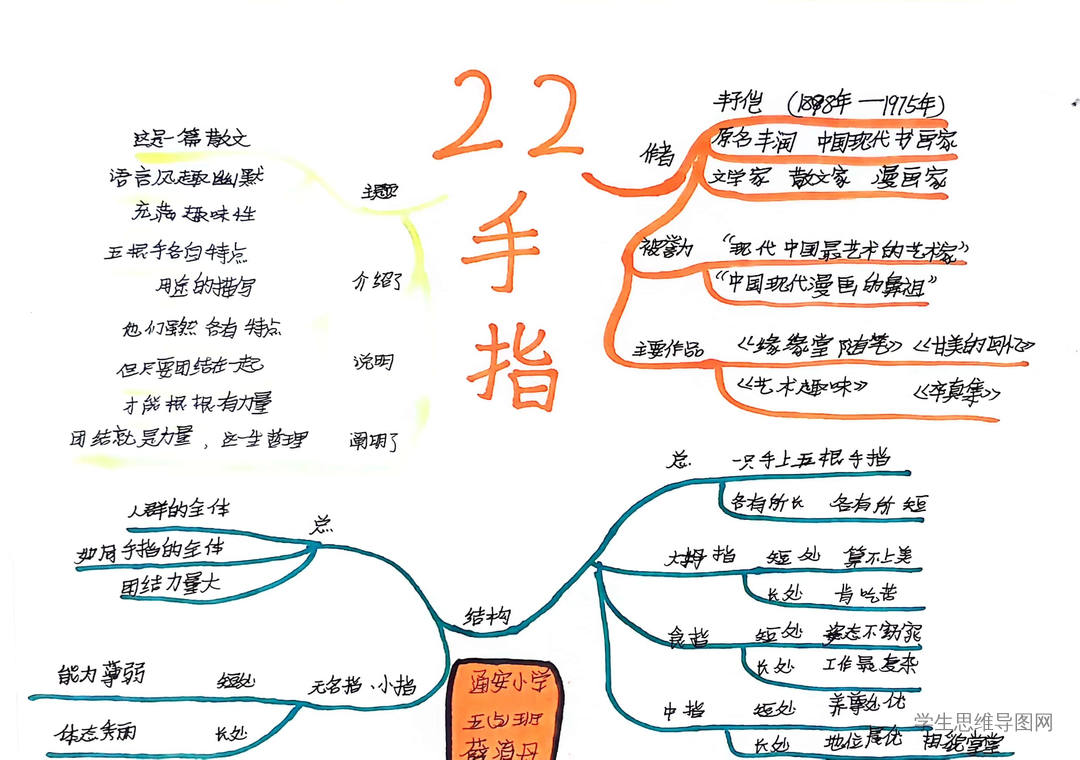 22
手
指
作者
丰子恺 (1898年—1975年)
原名丰润 中国现代书画家
文学家 散文家 漫画家
被誉为
“现代中国最艺术的艺术家”
“中国现代漫画的鼻祖”
主要作品
《缘缘堂随笔》《甘美的回忆》
《艺术趣味》 《率真集》
主题
这是一篇散文
语言风趣幽默
充满趣味性
介绍了
五根手各自特点
用途的描写
说明
他们虽然各有特点
但只要团结在一起
才能根根有力量
阐明了
团结就是力量，这一生哲理
结构
总
一只手上五根手指
各有所长 各有所短
大拇指 短处 算不上美
长处 肯吃苦
食指 短处 姿态不窈窕
长处 工作最复杂
中指 短处 养尊处优
长处 地位居优 相貌堂堂
无名指、小指
短处 能力薄弱
长处 体态秀丽
总
人群的全体
如同手指的全体
团结力量大
通安小学
学生思维导图网